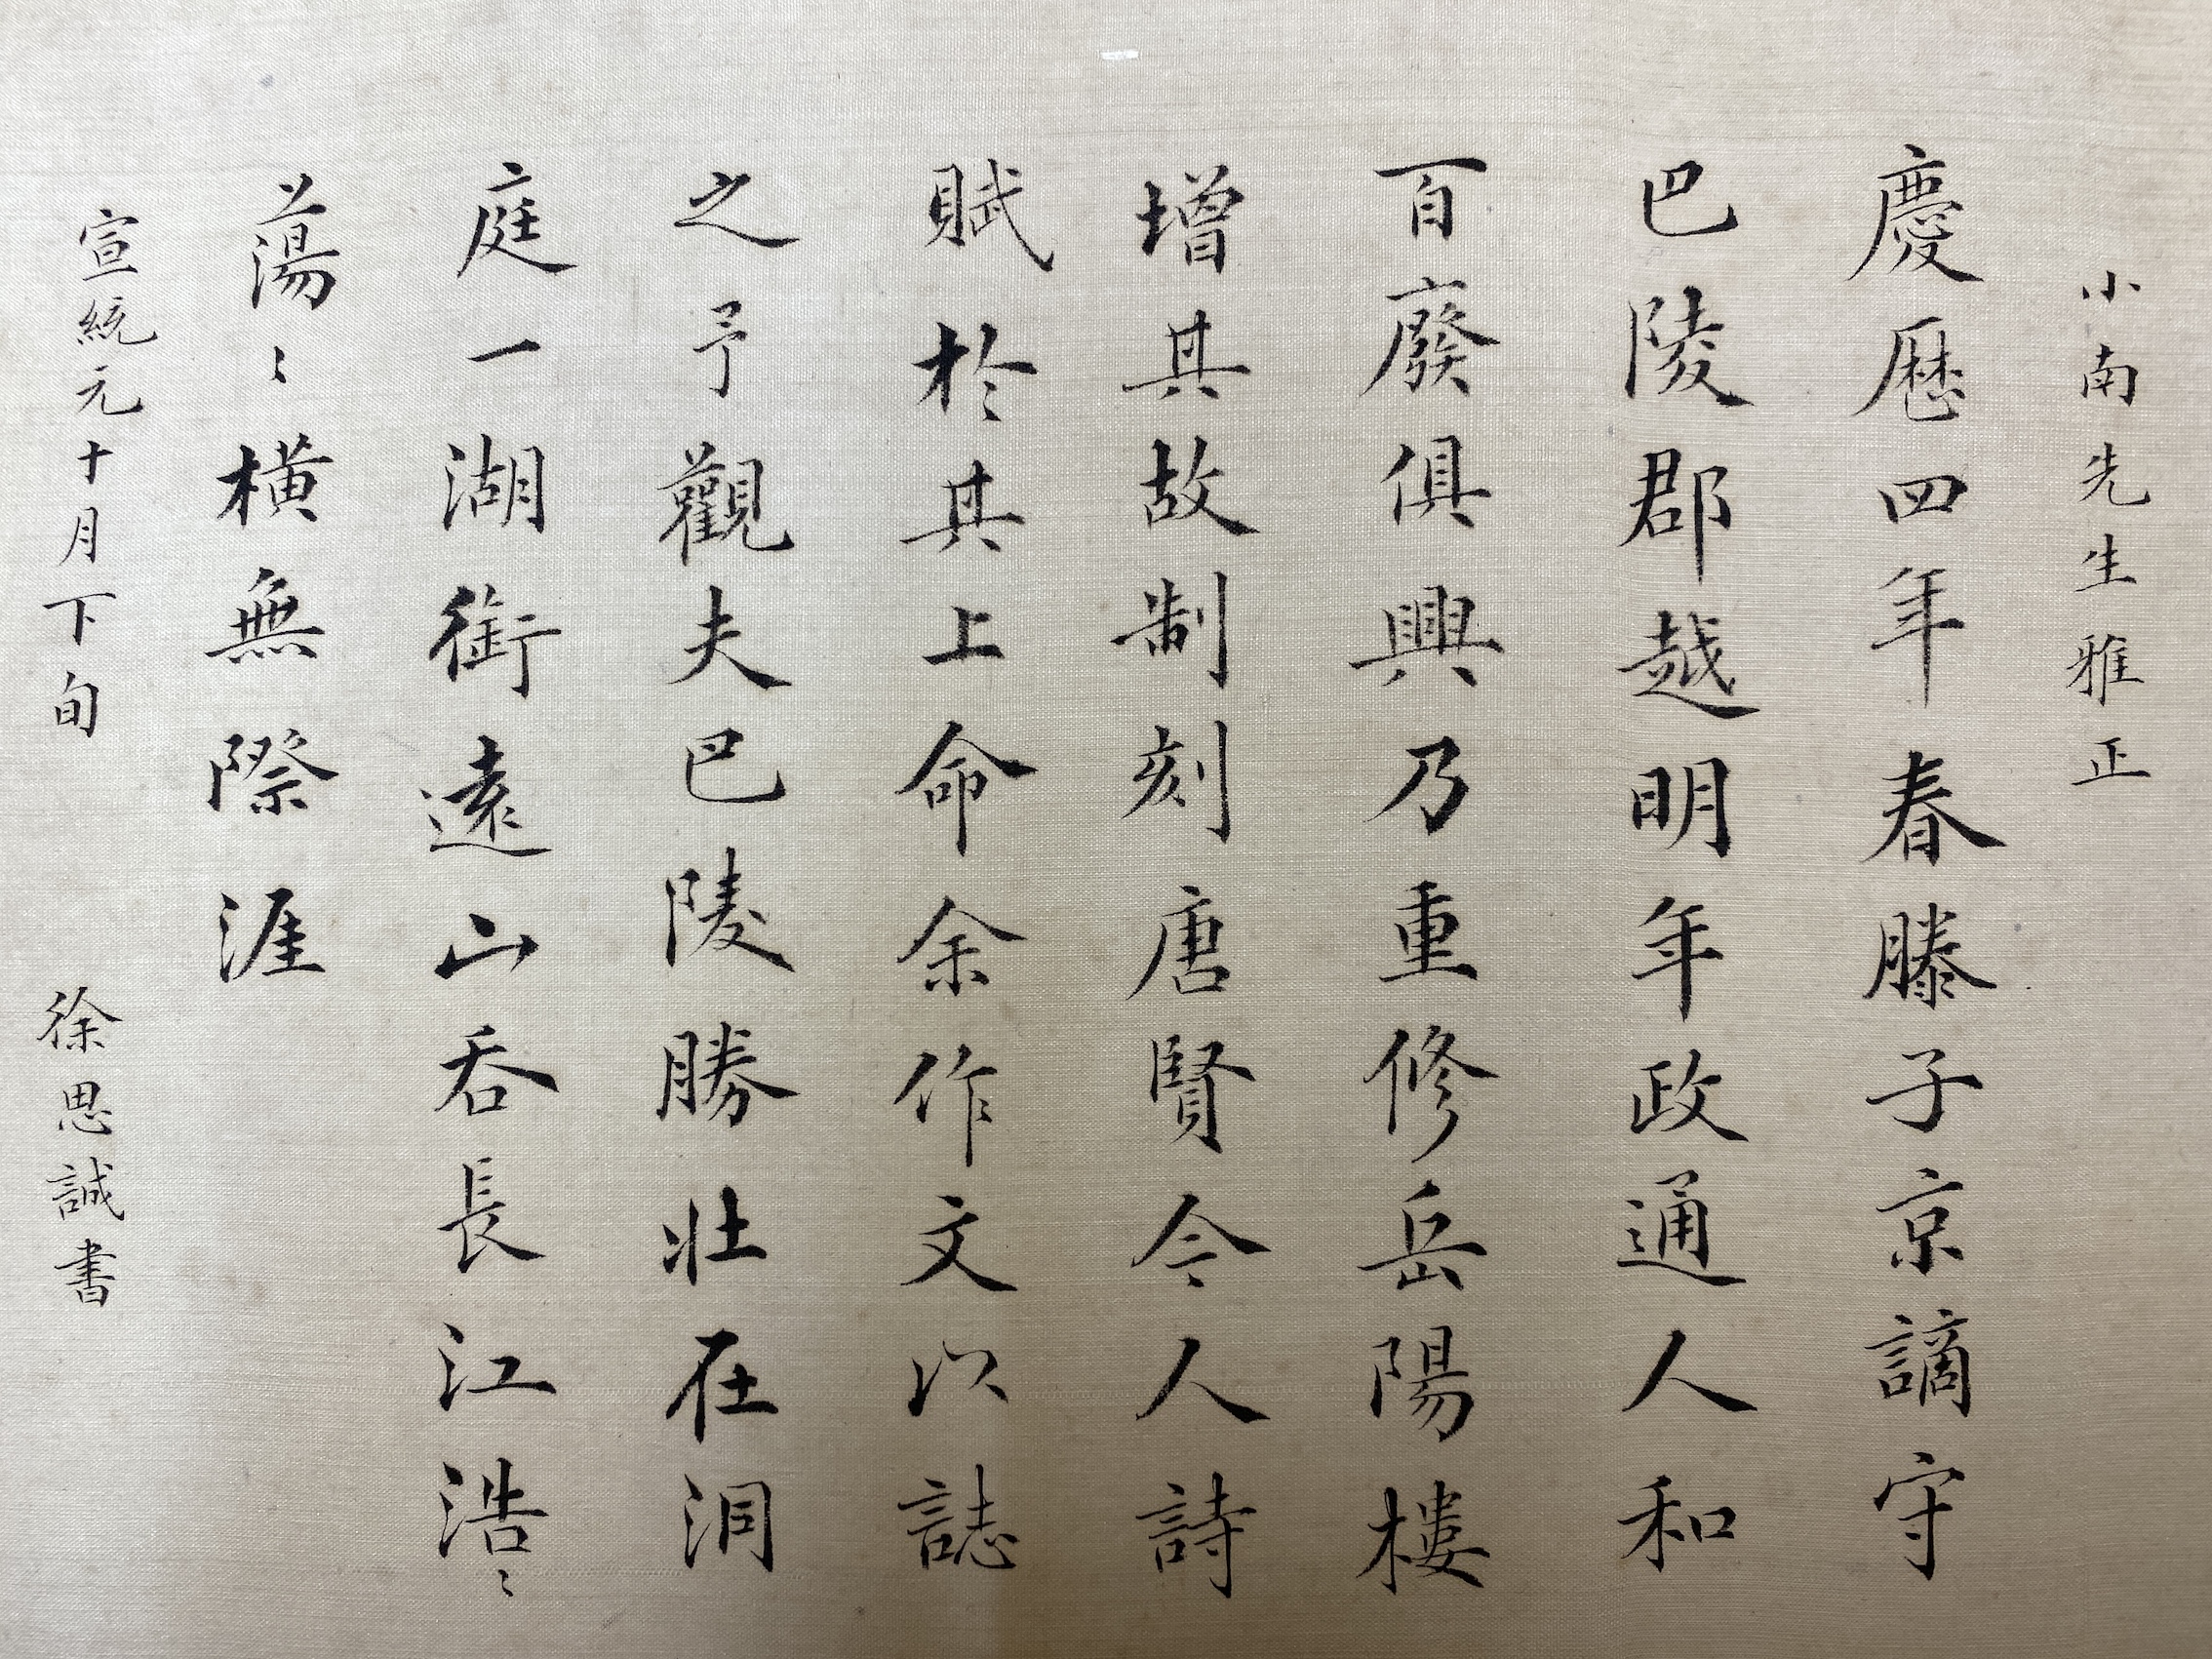 小南先生雅正
慶曆四年春滕子京謫守
巴陵郡越明年政通人和
百廢俱興乃重修岳陽樓
增其故制刻唐賢今人詩
賦於其上命余作文以誌
之予觀夫巴陵勝壯在洞
庭一湖銜遠山吞長江浩〻
蕩〻橫無際涯
宣統元十月下旬 徐思誠書